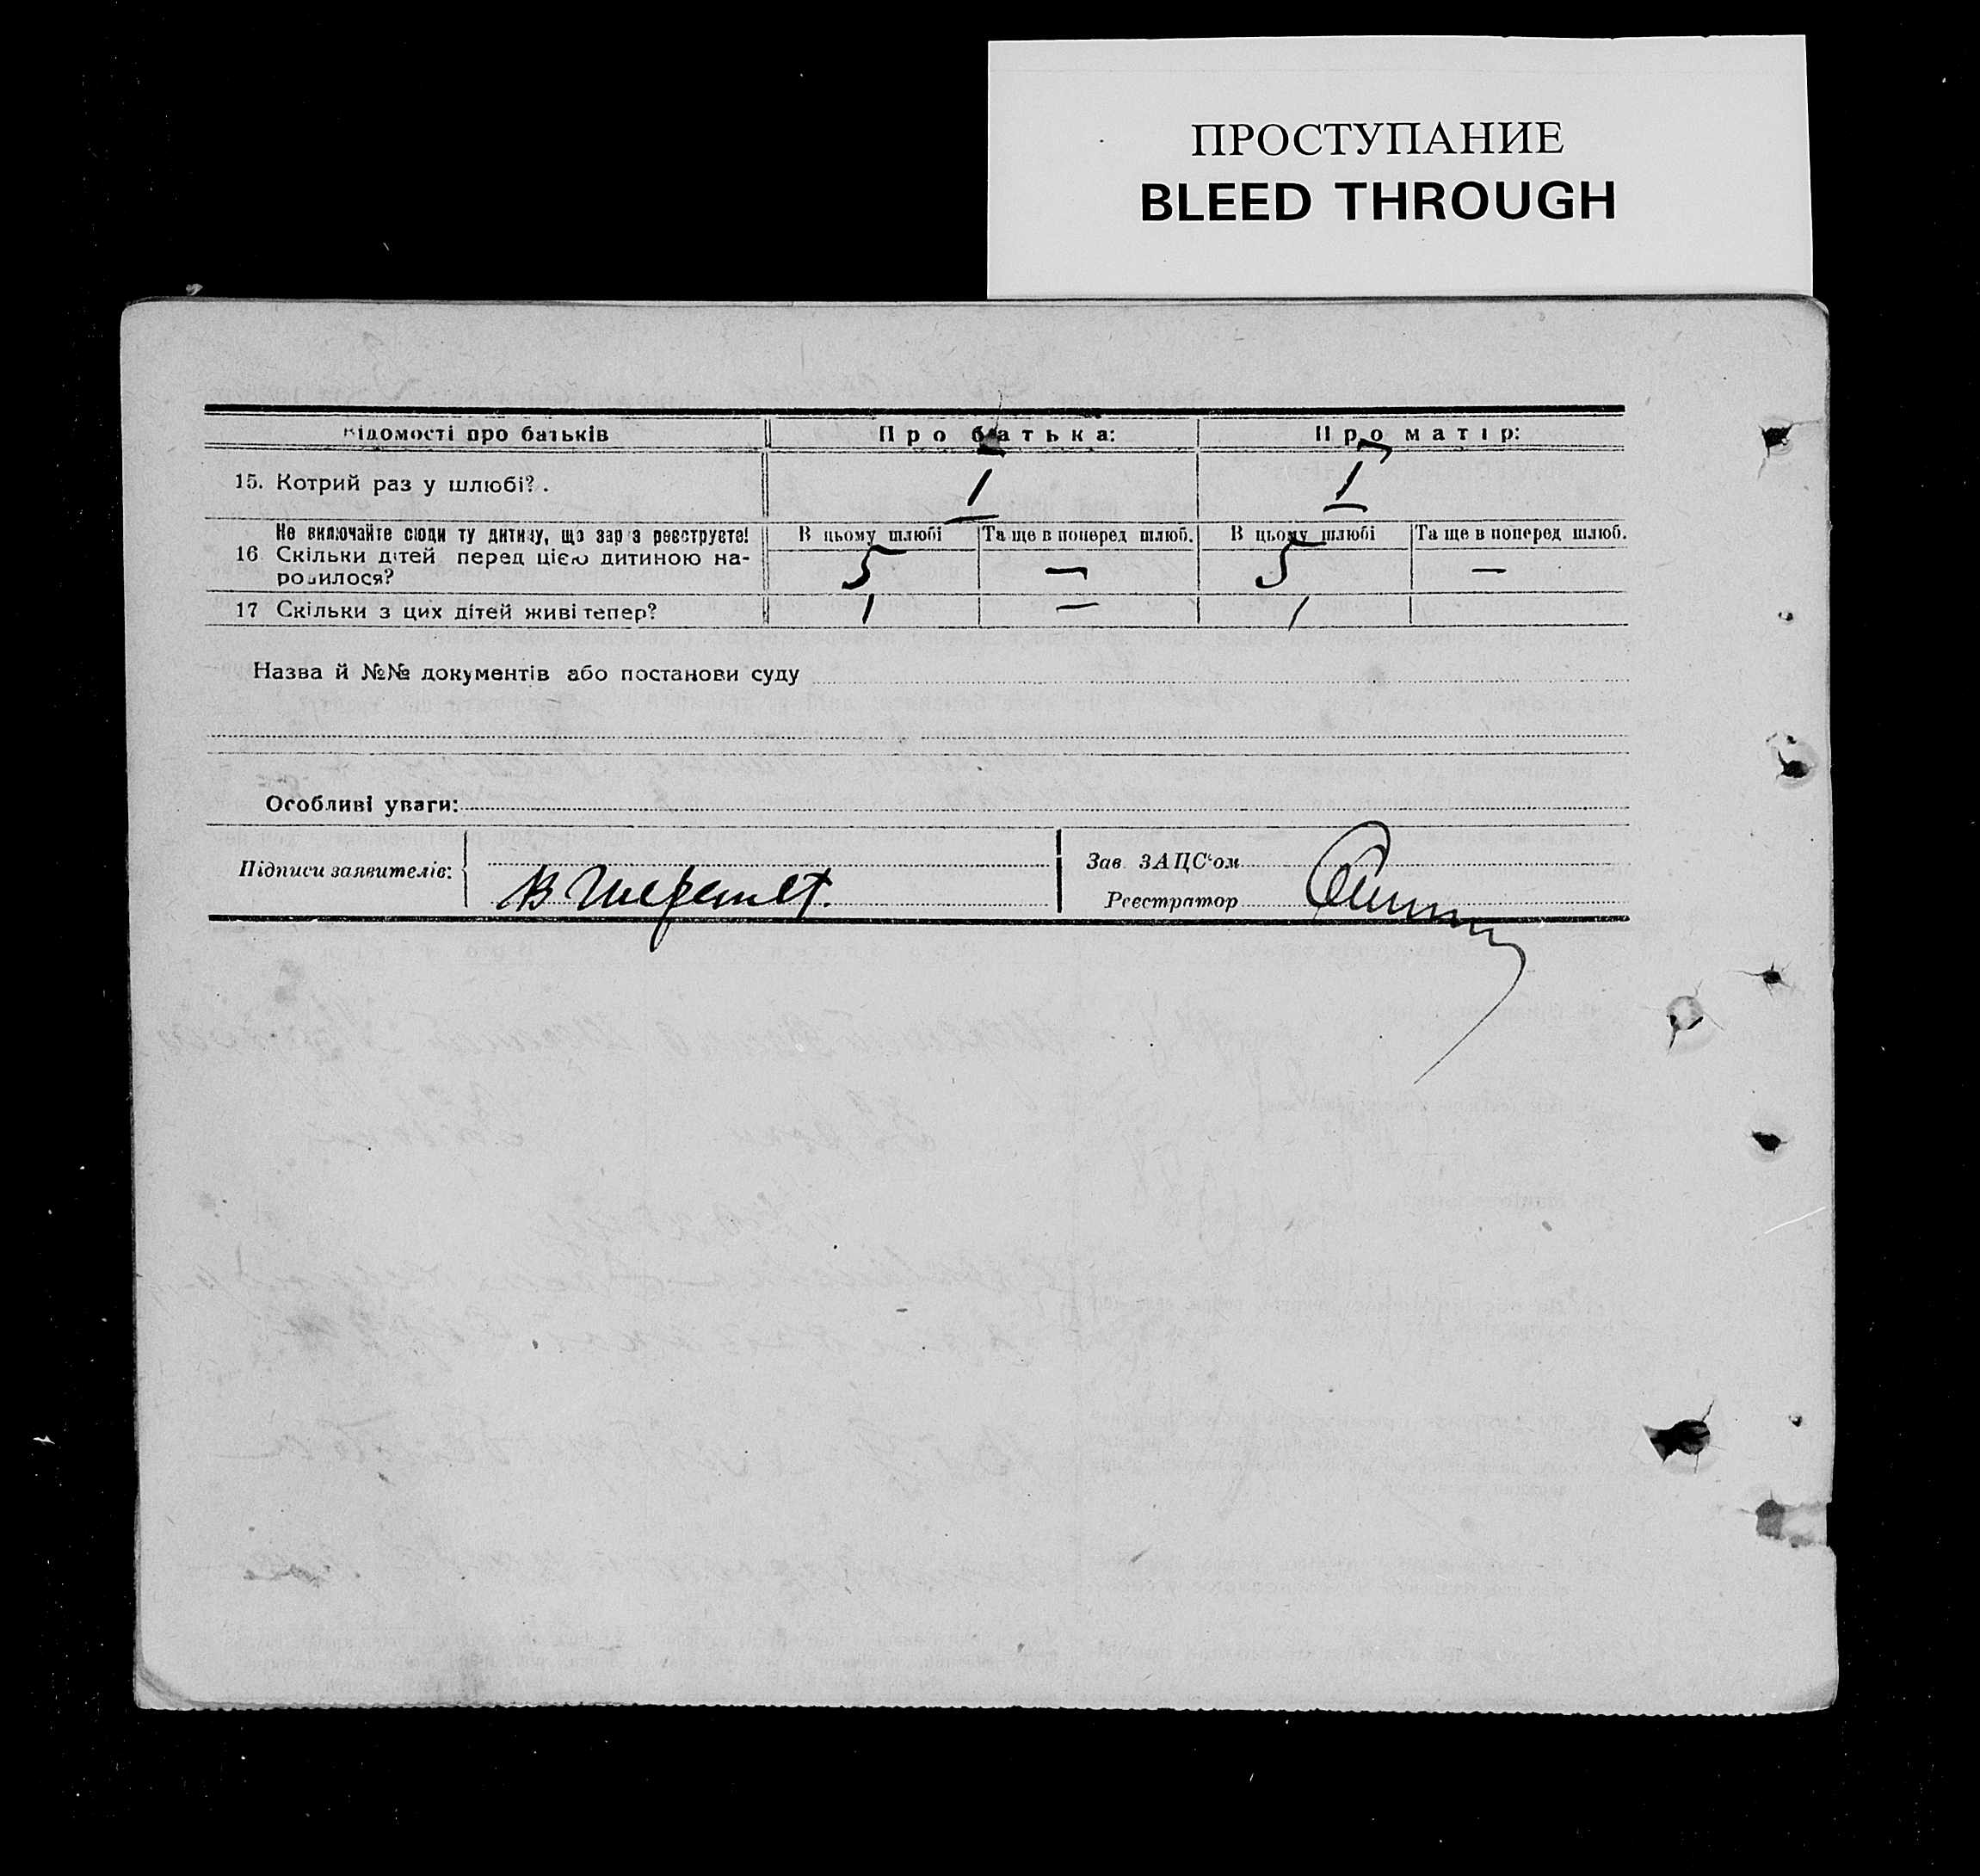 ПРОСТУПАНИЕ
BLEED THROUGH
Відомості про батьків Про батька: Про матір:
15. Котрий раз у шлюбі? . 1 1
Не включайте сюди ту дитину, що зараз реєструєте! В цьому шлюбі Та ще в поперед шлюб. В цьому шлюбі Та ще в поперед шлюб.
16 Скільки дітей перед цією дитиною на-
родилося? 5 — 5 —
17 Скільки з цих дітей живі тепер? 1 — 1
Назва й №№ документів або постанови суду
Особливі уваги:
Підписи заявителів: Зав ЗАЦС'ом
Реєстратор